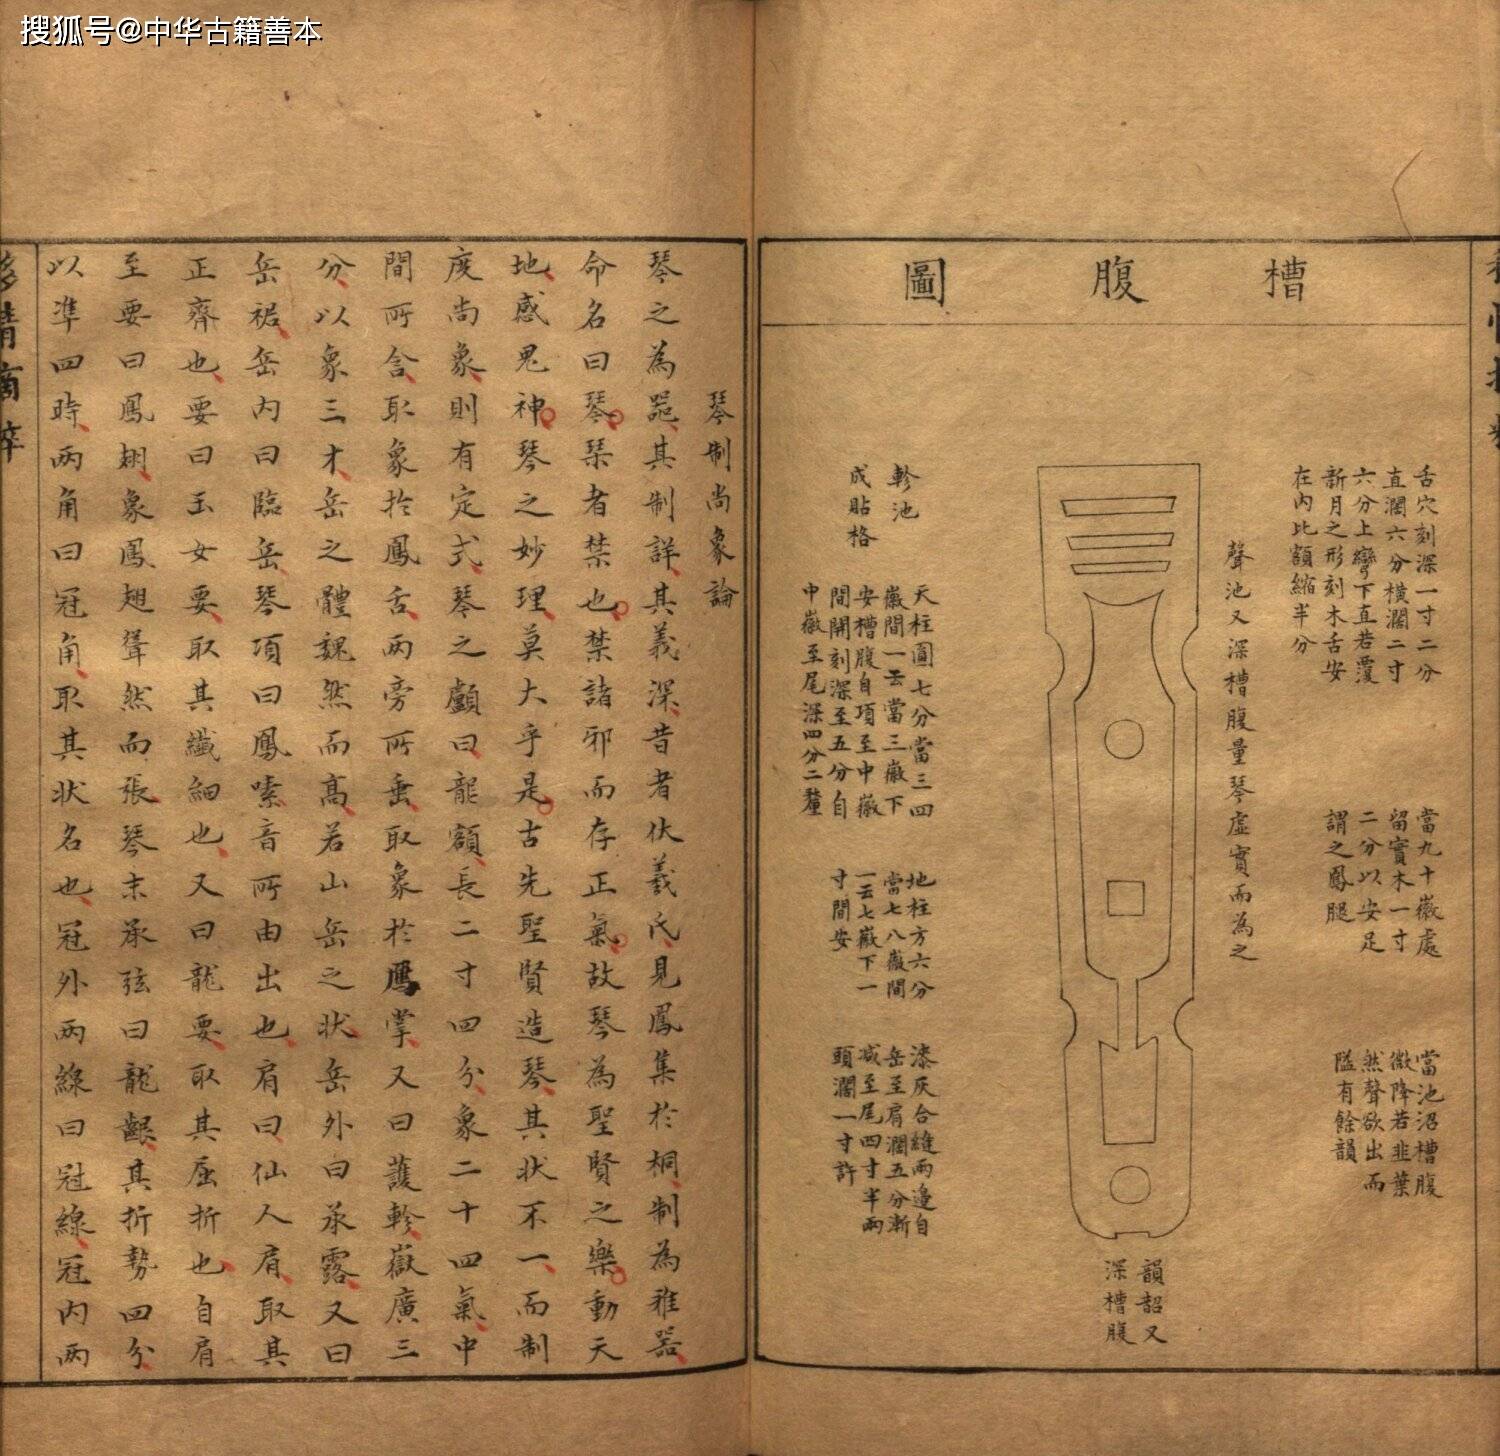 搜狐号@中华古籍善本
槽腹圖
舌穴刻深一寸二分
直濶六分橫濶二寸
六分上彎下直若覆
新月之形刻木舌安
在內比額縮半分
當九十徽處
留實木一寸
二分以安足
謂之鳳腿
當池沼槽腹
微降若韭葉
然聲欲出而
隘有餘韻
聲池又深槽腹量琴虛實而為之
韻韶又
深槽腹
軫池
成貼格
天柱圓七分當三四
徽間一云當三徽下
安槽腹自項至中徽
間開刻深至五分自
中徽至尾深四分二釐
地柱方六分
當七八徽間
一云七徽下一
寸間安
漆灰合縫兩邊自
岳至肩濶五分漸
減至尾四寸半兩
頭濶一寸許
琴制尚象論
琴之為器其制詳其義深昔者伏羲氏見鳳集於桐制為雅器
命名曰琴琹者禁也禁諸邪而存正氣故琴為聖賢之樂動天
地感鬼神琴之妙理莫大乎是古先聖賢造琴其狀不一而制
度尚象則有定式琴之顱曰龍額長二寸四分象二十四氣中
間所含取象於鳳舌兩旁所垂取象於鳬掌又曰護軫嶽廣三
分以象三才岳之體巍然而高若山岳之狀岳外曰承露又曰
岳裙岳內曰臨岳琴項曰鳳嗉音所由出也肩曰仙人肩取其
正齊也要曰玉女要取其纖細也又曰龍要取其屈折也自肩
至要曰鳳翅象鳳翅聳然而張琴末承弦曰龍齦其折勢四分
以準四時兩角曰冠角取其狀名也冠外兩線曰冠線冠內兩
移情摘粹